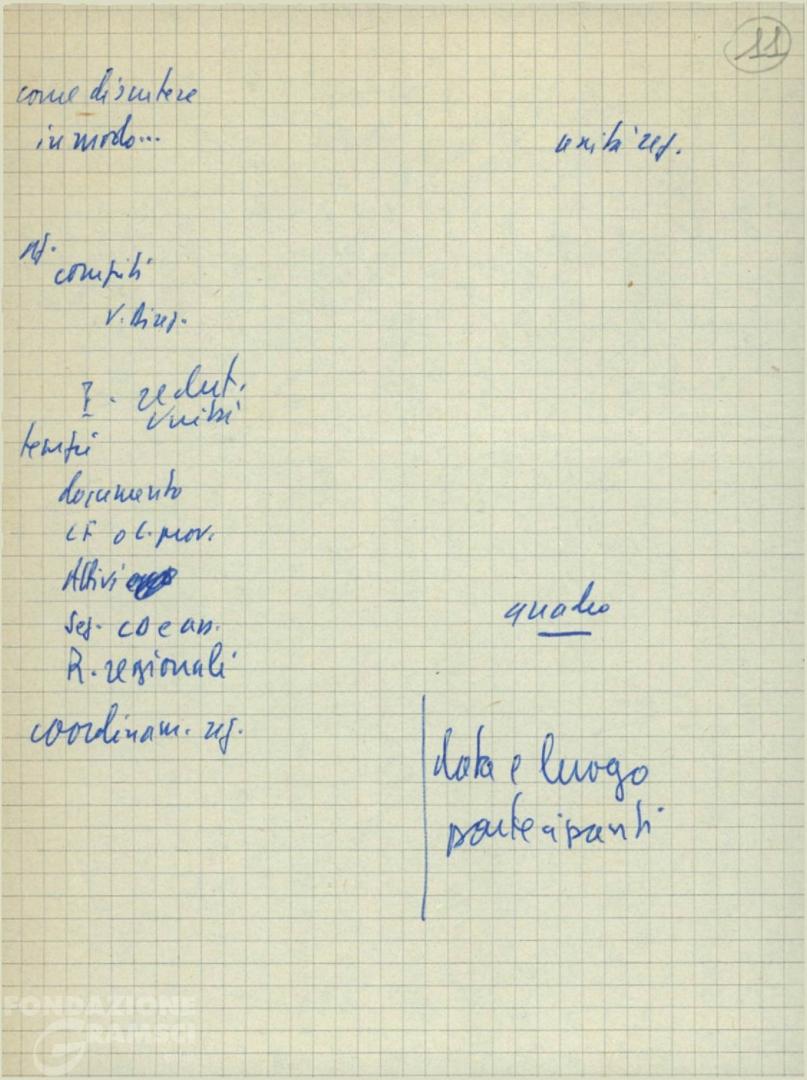 11
come discutere
in modo...
unità reg.
compiti
V. Direz.
unità
tempi
documento
CF o C. prov.
Attivi
Seg. CD e an.
R. regionali
coordinam. reg.
quadro
data e luogo
partecipanti
FONDAZIONE
GRAMSCI